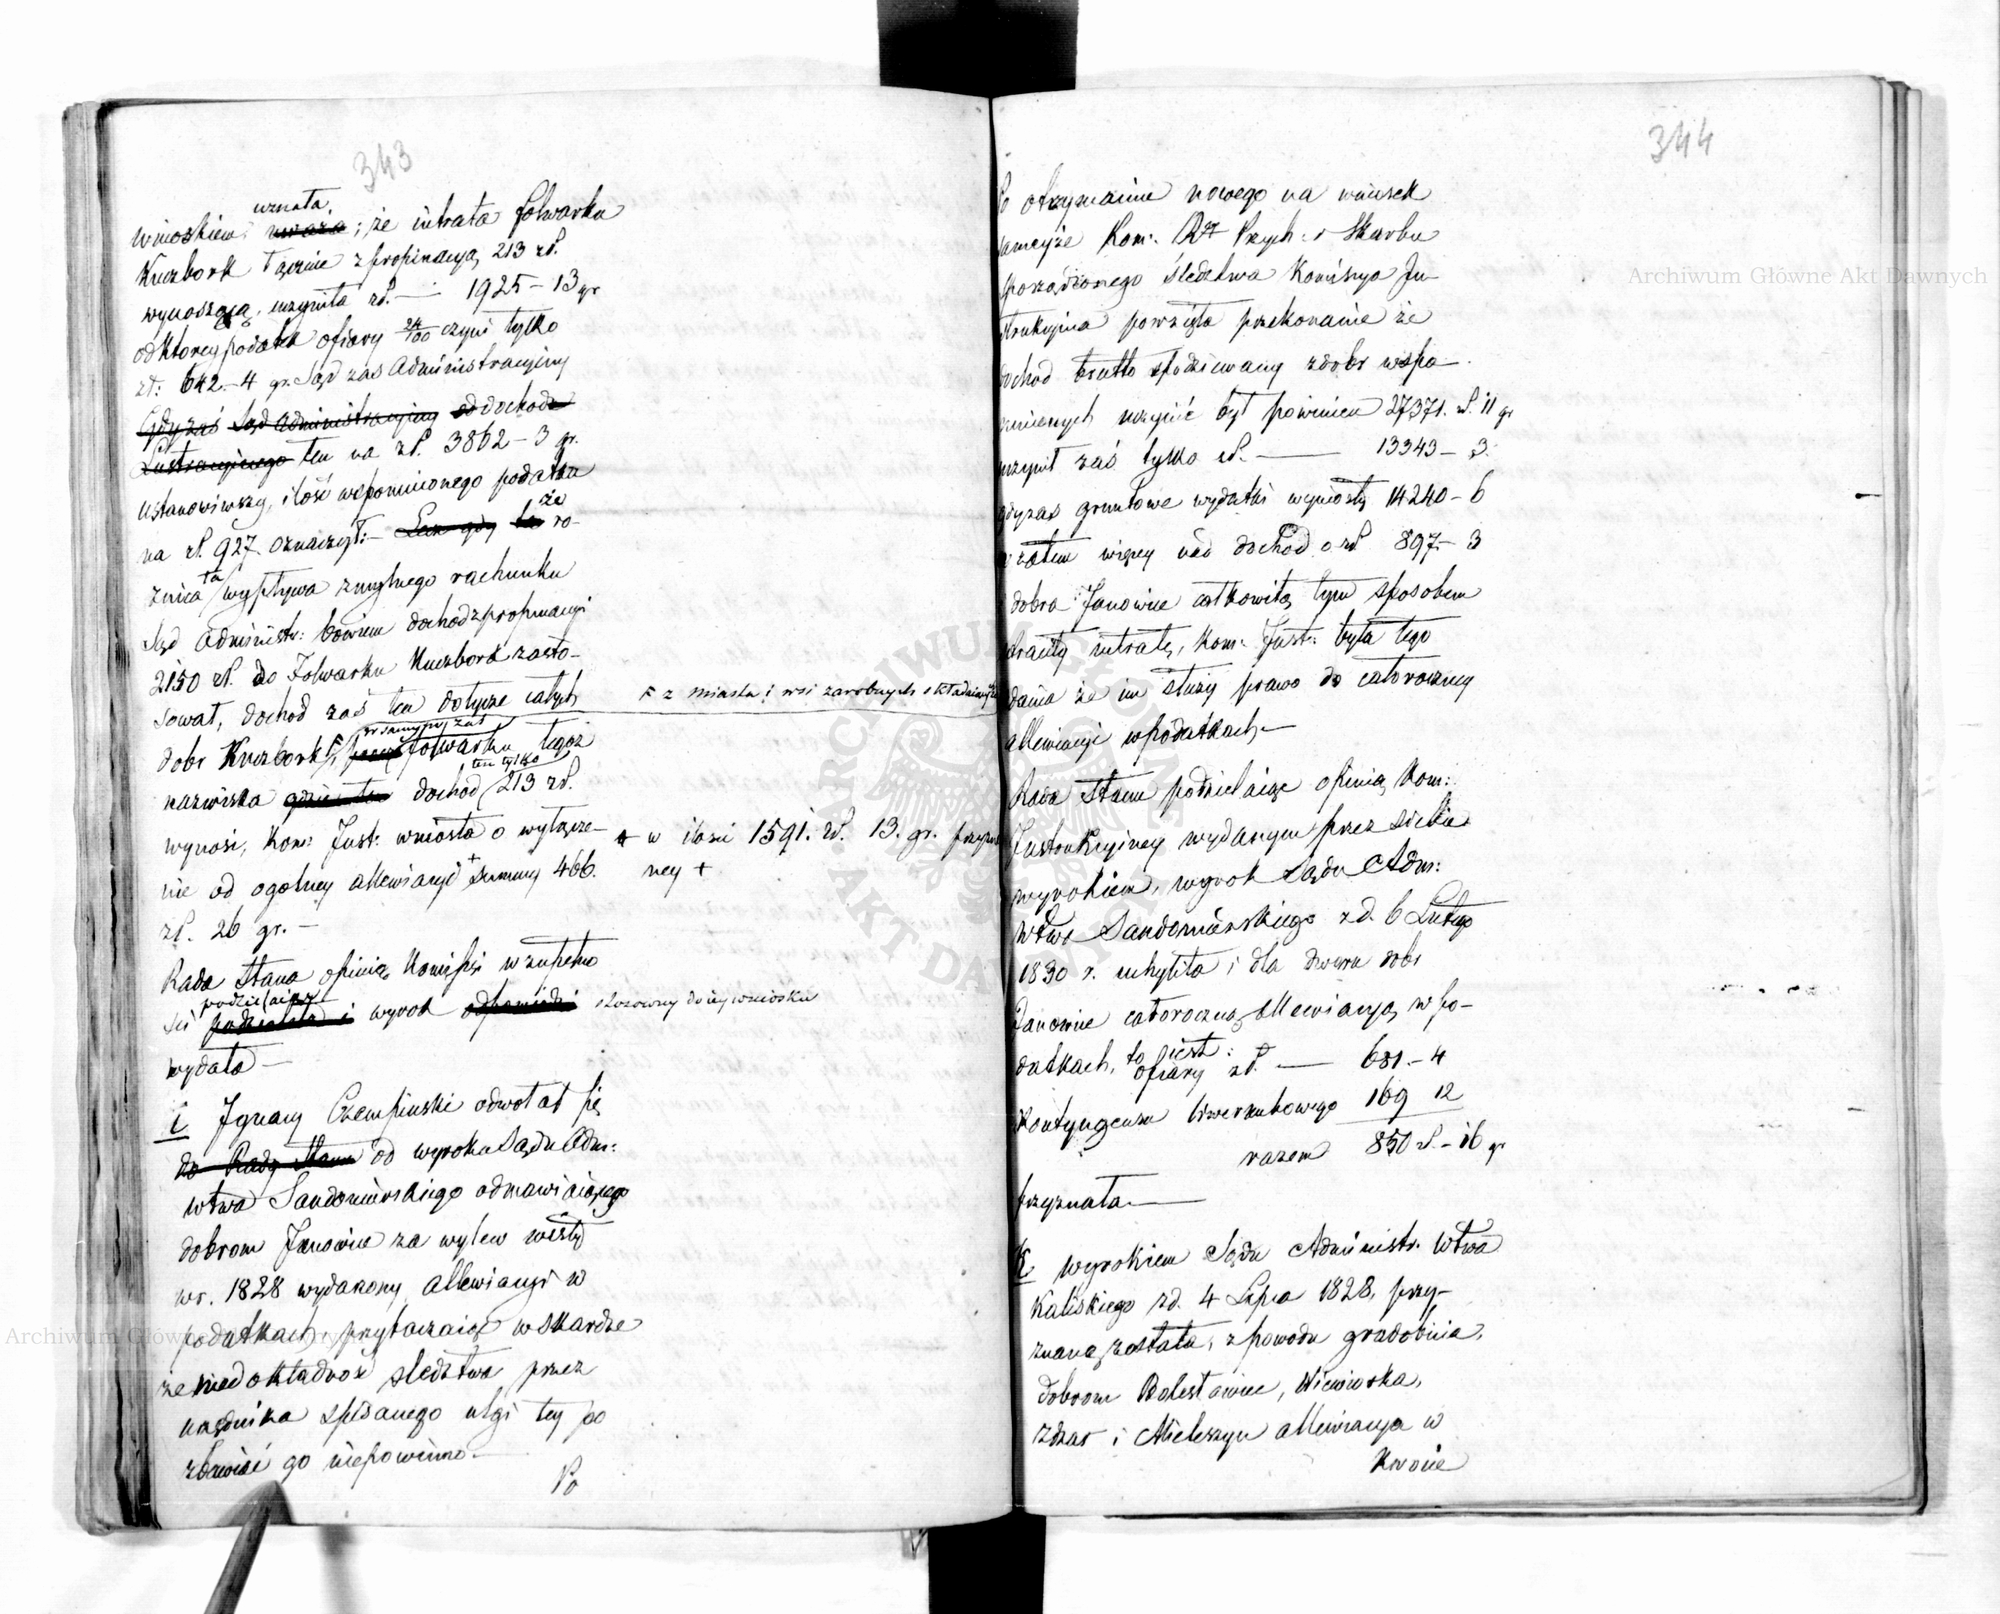 343
uznała
wnioskiem uważa; że intrata folwarku
Kuczbork łącznie z propinacyą 213 zł.
wynoszącą, uczyniła zł. — 1925 – 13 gr
od ktorey podatek ofiary 24/100 czyni tylko
zł: 642. – 4 gr. Sąd zas Administracyiny
Gdy zaś Sąd Administracyiny od dochodu
Lustracyinego ten na zł. 3862 – 3 gr.
ustanowiwszy, ilość wspomnionego podatku
na zł. 927. oznaczył: – Lecz gdy ta że ro-
żnica ta wypływa z mylnego rachunku
Sąd Administr: bowiem dochod z propinacyi
2150 zł. do Folwarku Kuczbork zasto-
sował, dochod zaś ten dotycze całych
dobr Kuczbork,
F z miasta i wsi zarobnych składaiących
folwarku tegoż
ten tylko
nazwiska gdzie ten dochod 213 zł.
wynosi, Kom: Inst: wniosła o wyłącze-
nie od ogolney allewiacyi + Summy 466.
+ w ilosci 1591. zł. 13. gr.
ney +
zł. 26 gr. –
Rada Stanu opinią Komissyi w zupełno
podzielaiąc
ści podzieliła i wyrok odpowiedni stosowny do iey wniosku
wydała —
i Ignacy Czempinski odwołał się
do Rady Stanu od wyroku Sądu Adm:
Wtwa Sandomirskiego odmawiaiącego
dobrom Janowice za wylew wisły
w r. 1828 wydarzony allewiacyi w
podatkach, przytaczaiąc w skardze
że niedokładność sledztwa przez
urzędnika spisanego ulgi tey po
zbawiać go niepowinno —
Po
344
Po otrzymaniu nowego na wniosek
tameyże Kom: Rz. Przych: i Skarbu
sporządzonego śledztwa Komissya In-
strukcyina powzięła przekonanie że
dochod brutto spodziewany z dobr wspo-
mnionych uczynić był powinien 27371. zł. 11 gr
uczynił zaś tylko zł. — 13343 – 3.
gdy zas gruntowe wydatki wyniosły 14240 – 6
a zatem więcey nad dochod o zł 897. – 3
dobra Janowice całkowitą tym sposobem
straciły intratę, Kom: Inst: była tego
zdania że im służy prawo do całoroczney
allewiacyi w podatkach. —
Rada Stanu podzielaiąc opinią Kom:
Instrukcyiney wydanym przez siebie
wyrokiem, wyrok Sądu Adm:
Wtwa Sandomirskiego z d. 6 Lutego
1830 r. uchyliła i dla dworu dobr
Janowice całoroczną allewiacyą w po-
datkach, to iest:
ofiary zł. — 681. – 4
Kontyngensu liwerunkowego 169 12
razem 850 zł. – 16 gr
przyznała. —
K wyrokiem Sądu Administr. Wtwa
Kaliskiego z d. 4 Lipca 1828, przy-
znaną została, z powodu gradobicia,
dobrom Bolesławiec, Wiewiorka,
Zdzar i Mieleszyn allewiacya w
kwocie
Archiwum Główne Akt Dawnych
Archiwum Główne Akt Dawnych
ARCHIWUM GŁÓWNE AKT DAWNYCH